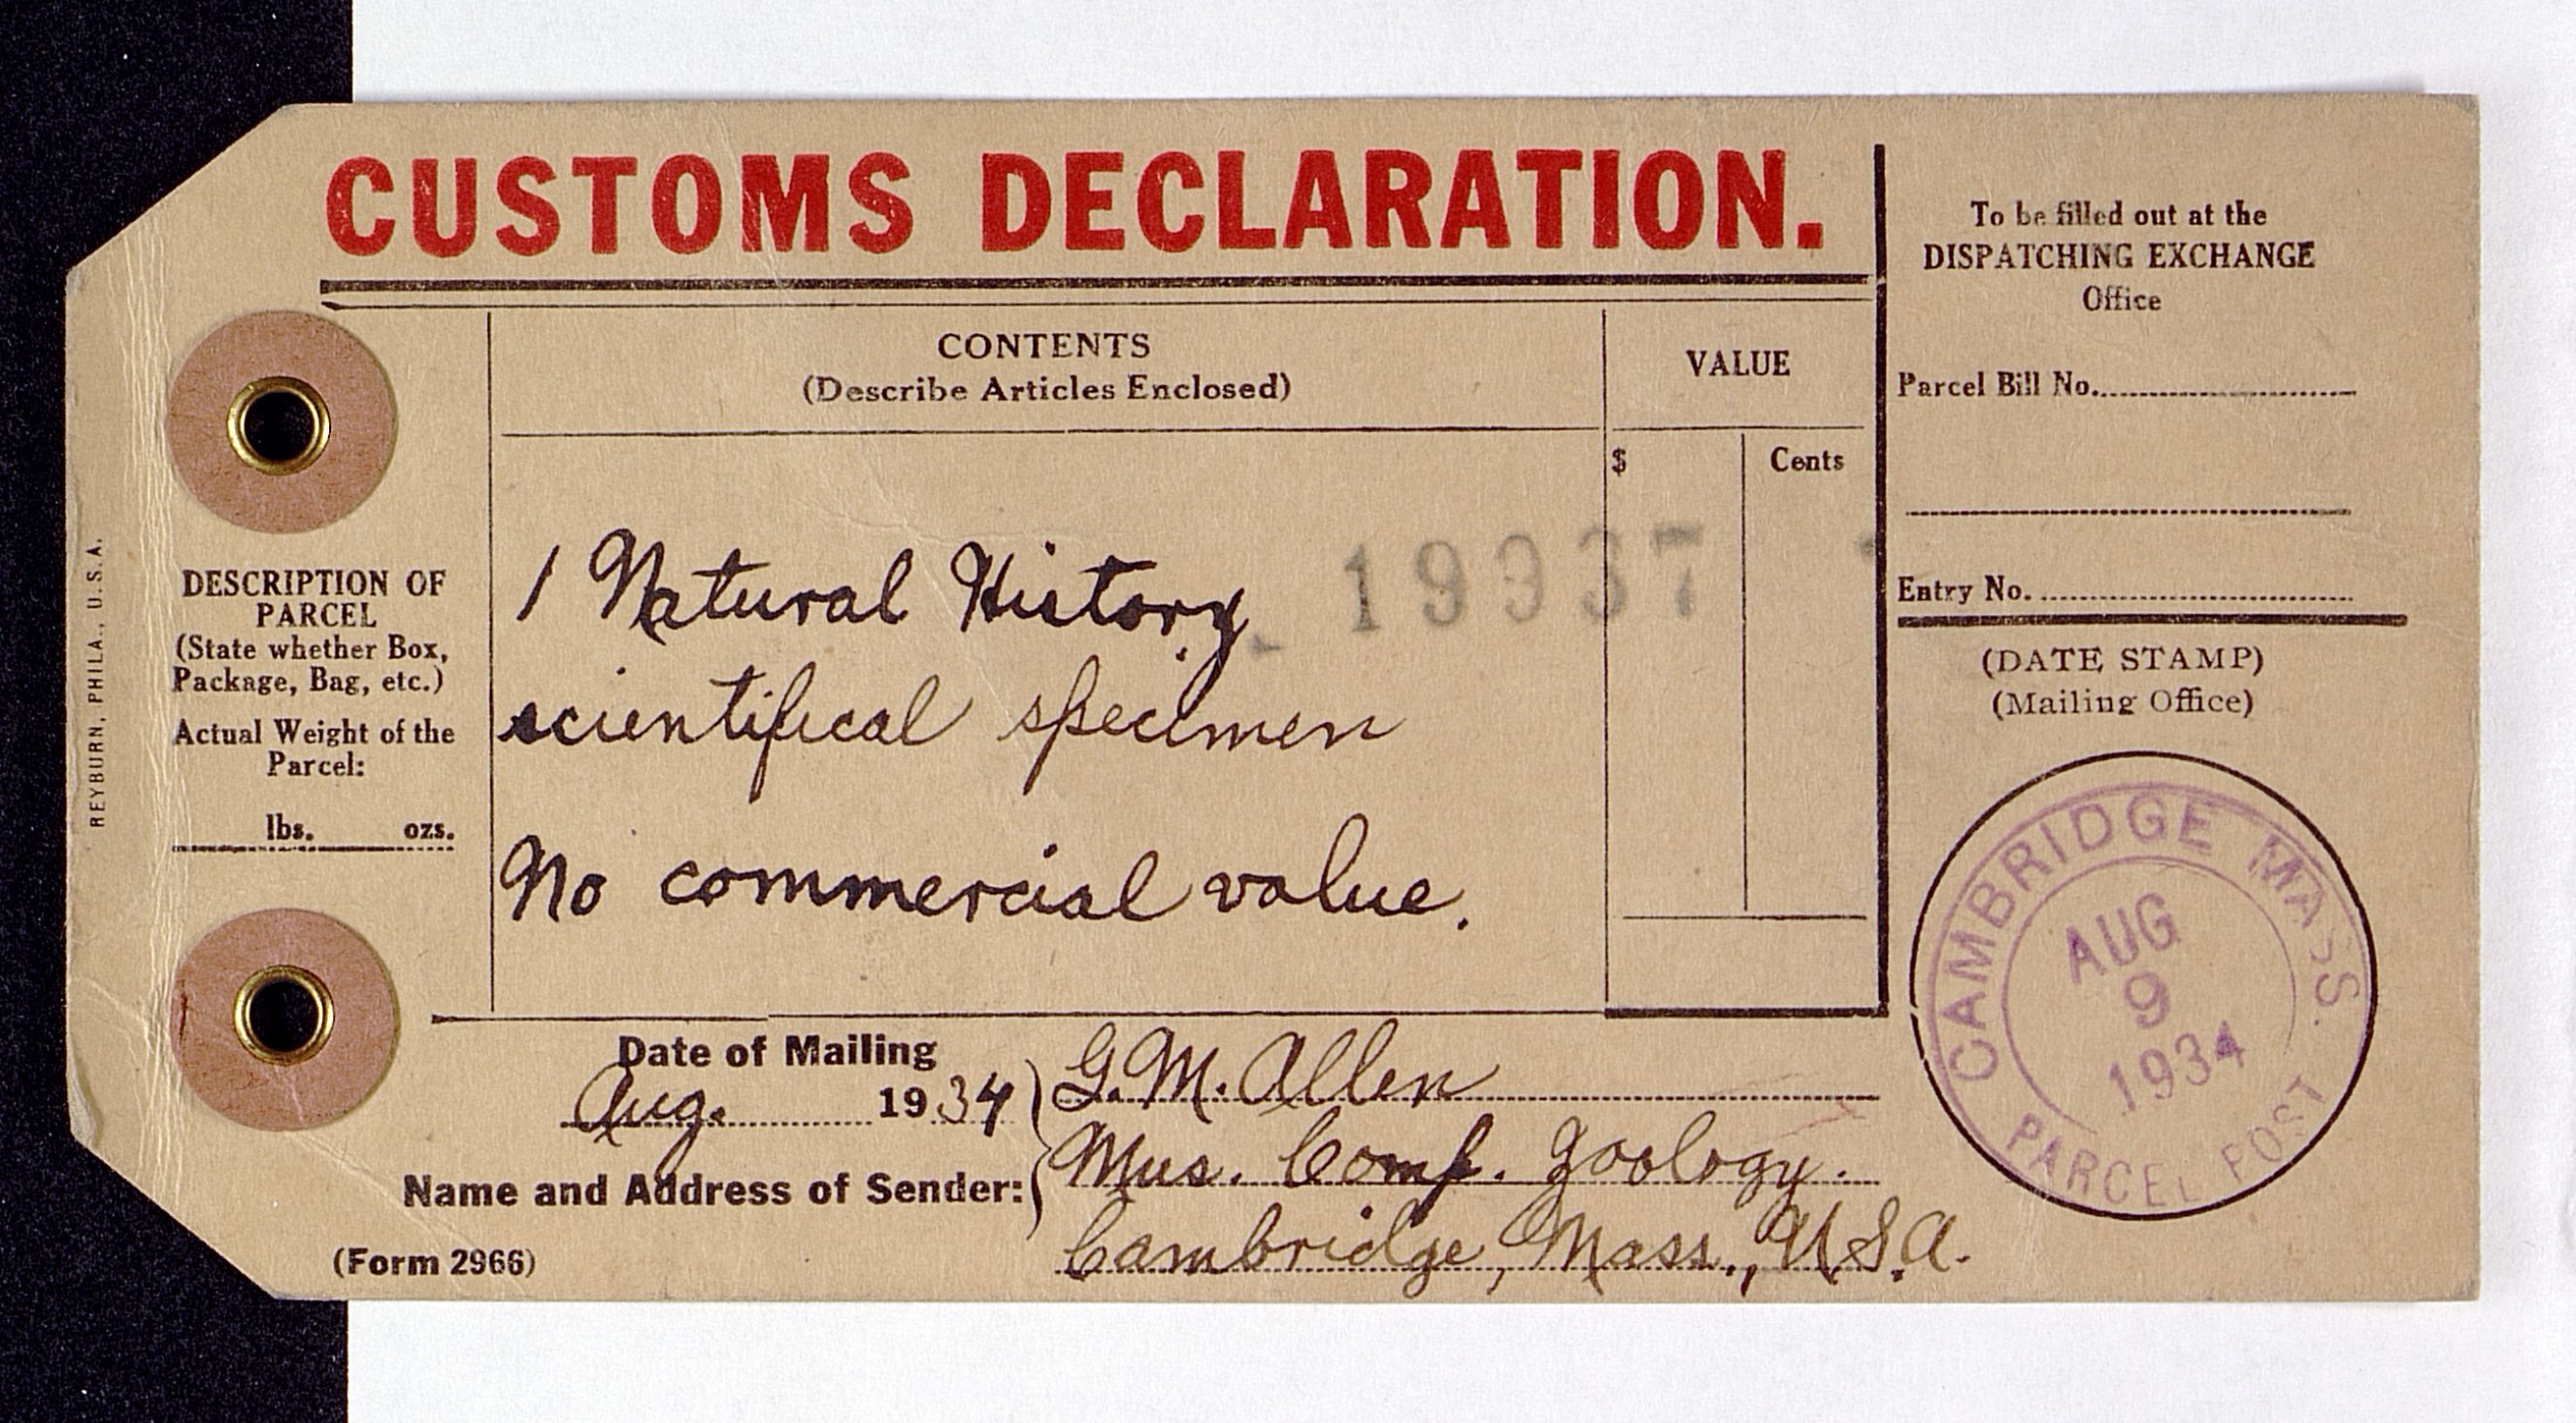 CUSTOMS DECLARATION.
REYBURN, PHILA., U.S.A.
DESCRIPTION OF
PARCEL
(State whether Box,
Package, Bag, etc.)
Actual Weight of the
Parcel:
lbs. ozs.
CONTENTS
(Describe Articles Enclosed)
VALUE
$ Cents
1 Natural History
19937
scientifical specimen
No commercial value.
Date of Mailing
Aug. 1934
Name and Address of Sender:
G. M. Allen
Mus. Comp. Zoology.
Cambridge, Mass., U.S.A.
(Form 2966)
To be filled out at the
DISPATCHING EXCHANGE
Office
Parcel Bill No.
Entry No.
(DATE STAMP)
(Mailing Office)
CAMBRIDGE MASS.
AUG
9
1934
PARCEL POST